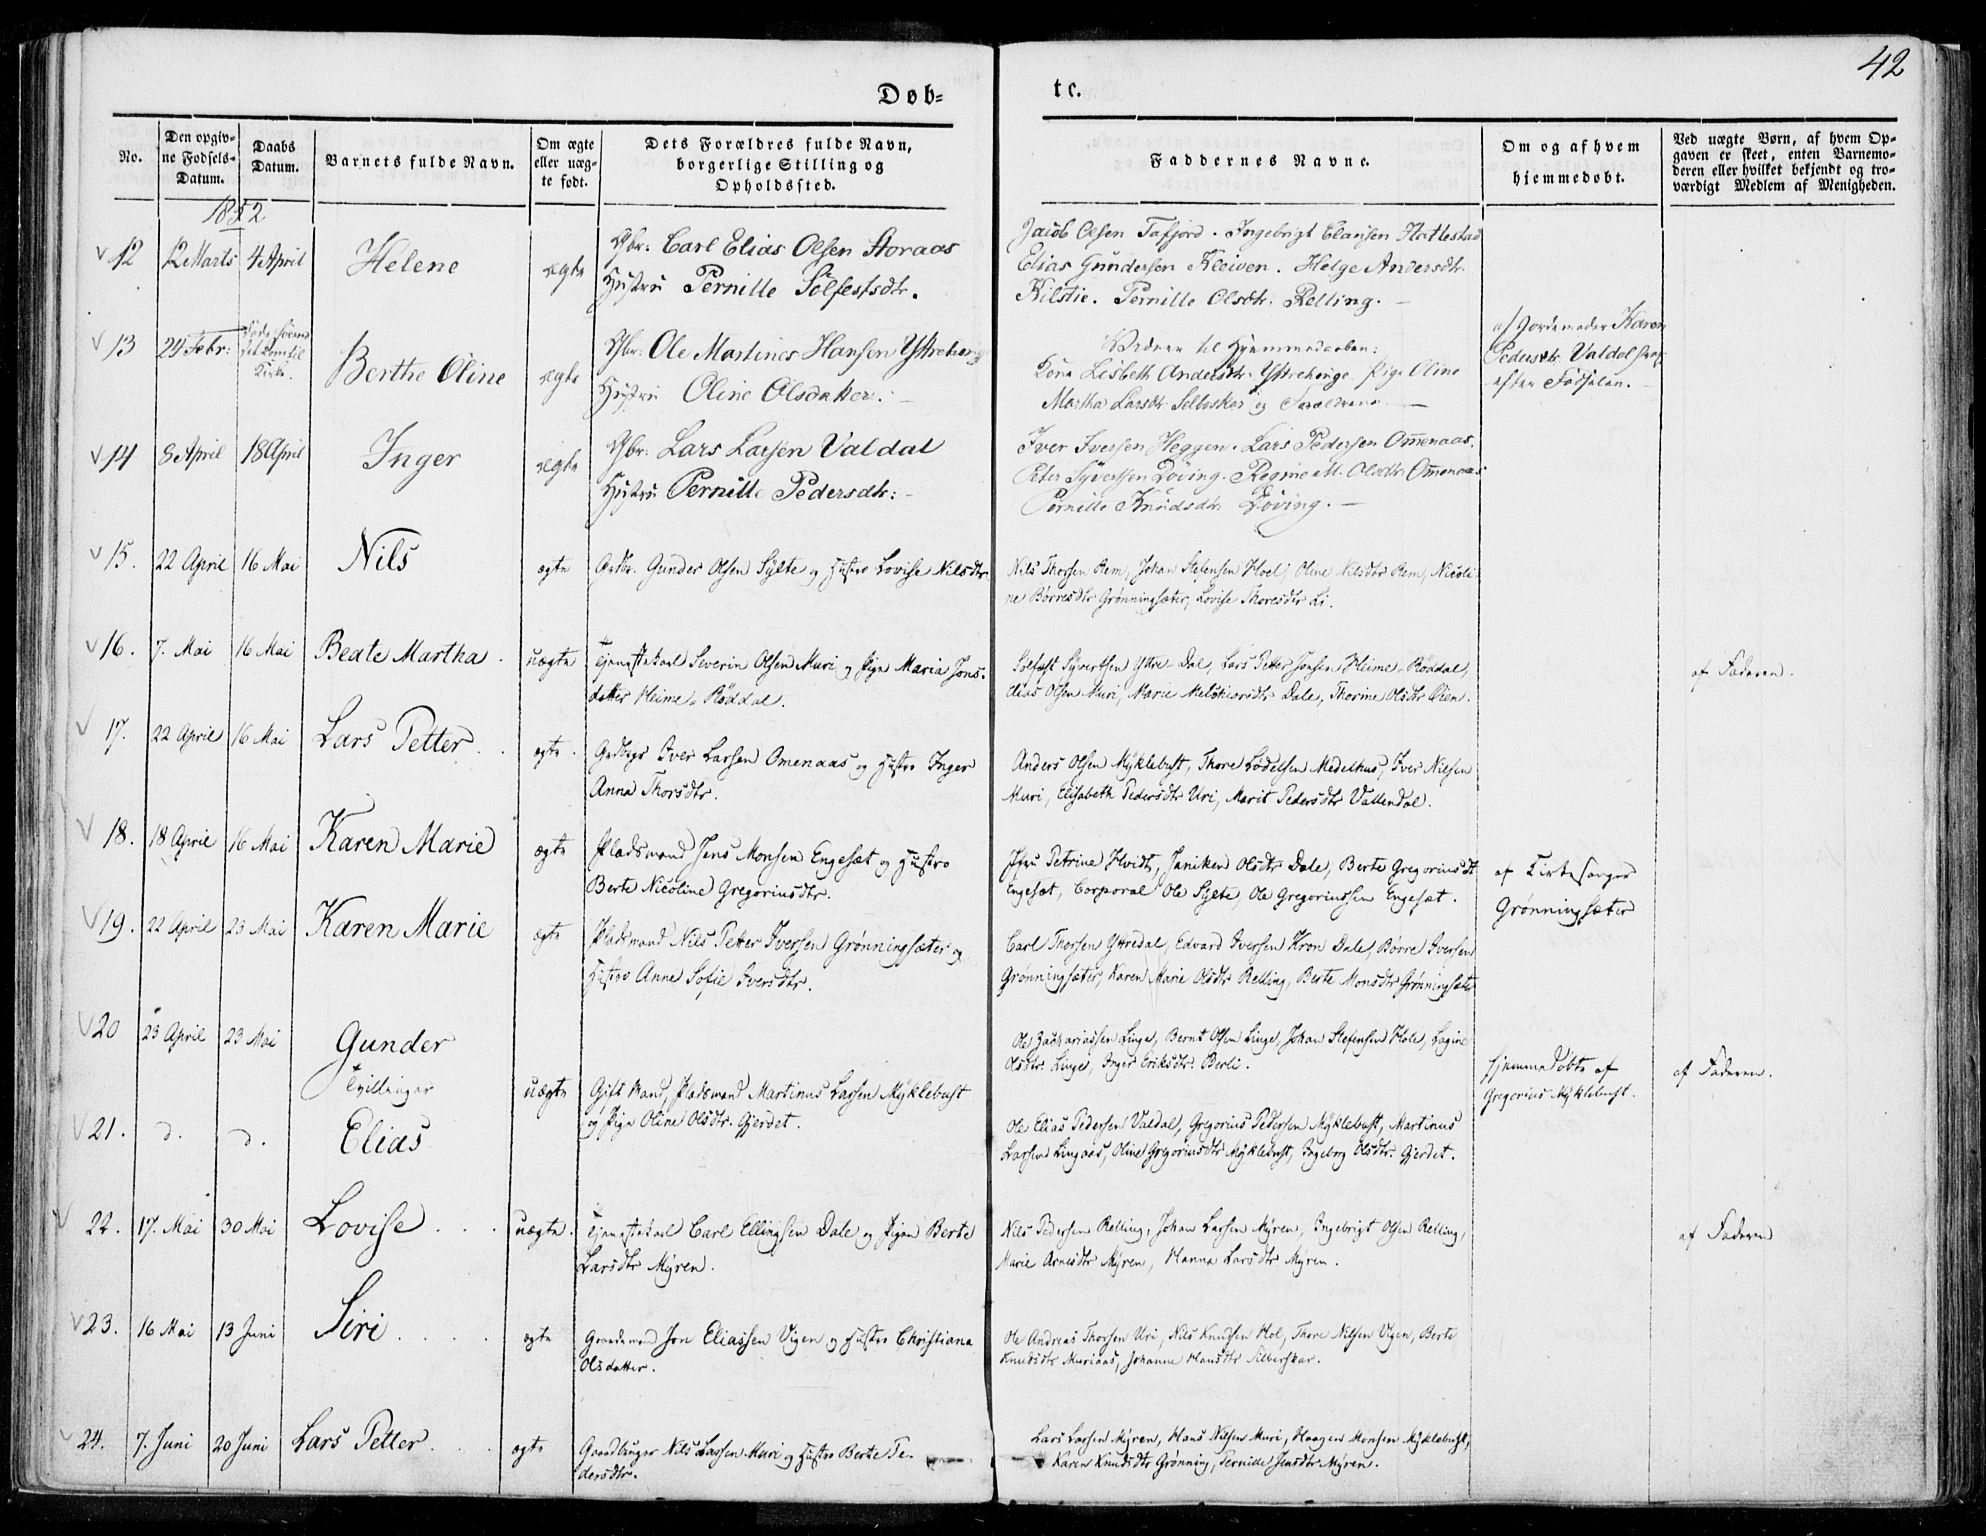 42
Døb=
te.
No.
Den opgiv-
ne Fødsels-
Datum.
Daabs
Datum.
Barnets fulde Navn.
Om ægte
eller uæg-
te født.
Dets Forældres fulde Navn,
borgerlige Stilling og
Opholdssted.
Faddernes Navne.
Om og af hvem
hjemmedøbt.
Ved uægte Børn, af hvem Op-
gaven er skeet, enten Barnemo-
deren eller hvilket bekjendt og tro-
værdigt Medlem af Menigheden.
1852
12 12 Marts 4 April Helene ægte Gbr: Carl Elias Olsen Storaas
Hustru Pernille Solfestsdtr.
Jacob Olsen Tafjord. Ingebrigt Clausen Hattestad
Elias Gundersen Kleiven. Helge Andersdtr.
Kilstie. Pernille Olsdtr: Relling.
13 24 Febr: Berthe Oline ægte Gbr: Ole Martines Hansen Yttrehorig
Hustru Oline Olsdatter.
Faddere til Hjemmedaaben:
Kone Lisbeth Andersdtr. Pige Oline
Martha Larsdtr. Selboskar og
af Jordemoder Karen
Pedersdtr. Valdal
efter Fødselen.
14 8 April 18 April Inger ægte Gbr: Lars Larsen Valdal
Hustru Pernille Pedersdtr:
Iver Iversen Heggen. Lars Pedersen Omenaas.
Peter Syvertsen Døving. Regine M. Olsdtr. Omenaas
Pernille Knudsdtr. Døving.
15. 22 April 16 Mai Nils ægte Gunder Olsen Sylte og Hustro Lovise Nilsdtr.
Nils Thorsen Rem, Johan Stefensen Hoel, Oline Nilsdtr Rem, Nicoli-
ne Børresdtr Grønningsæter, Lovise Thoresdtr Li.
16. 7. Mai 16 Mai Beate Martha. uægte Tjenestekarl Severin Olsen Muri og Pige Maria Jons-
datter Heime-Røddal.
Solfest Syvertsen Yttre-Dal, Lars Petter Jonsen Heime-Røddal,
Elias Olsen Muri, Marie Melchiorsdtr Dale, Thorine Olsdtr Øien.
af Faderen.
17. 22 April 16 Mai Lars Petter. ægte. Iver Larsen Omenaas og Hustro Inger
Anna Thorsdtr.
Anders Olsen Myklebust, Thore Lodelsen Medelhus, Iver Nilsen
Muri, Elisabeth Pedersdtr Uri, Marit Pedersdtr Vallendal.
18. 18 April 16 Mai Karen Marie ægte Pladsmand Jens Monsen Engeset og Hustro
Berte Nicoline Gregoriusdtr.
Jfru Petrine Hvidt, Janiken Olsdtr Dale, Berte Gregoriusdtr
Engeset, Corporal Ole Sylte, Ole Gregoriussen Engeset.
af Kirkesanger
Grønningsæter
19. 22 April 23 Mai Karen Marie ægte Pladsmand Nils Petter Iversen Grønningsæter og
Hustro Anne Sofie Iversdtr.
Carl Thorsen Yttredal, Edvard Iversen Kron Dale, Børre Iversen
Grønningsæter, Karen Marie Olsdtr Relling, Berte Monsdtr Grønningsæter
20 23 April 23 Mai Gunder
Tvillinger
uægte Gift Mand, Pladsmand Martinus Larsen Myklebust
og Pige Oline Olsdtr. Gjerdet.
Ole Zachariassen Linge, Bernt Olsen Linge, Johan Stefensen Hole,
Olsdtr: Linge, Inger Eriksdtr: Berli.
hjemmedøbte af
Gregorius Myklebust.
af Faderen.
21. d. d. Elias
Ole Elias Pedersen Valdal, Gregorius Pedersen Myklebust, Martinus
Larsen Lingaas, Oline Gregoriusdtr Myklebust, Ingeborg Olsdtr. Gjerdet.
22. 17. Mai 30 Mai Lovise uægte. Tjenestekarl Carl Ellingsen Dale og Pigen Berte
Larsdtr Myren.
Nils Pedersen Relling, Johan Larsen Myren, Ingebrigt Olsen Relling,
Marie Arnesdtr Myren, Hanna Larsdtr Myren.
af Faderen
23. 16 Mai 13 Juni Siri ægte Gaardmand Jon Eliassen Vigen og Hustro Christiana
Olsdatter.
Ole Andreas Thorsen Uri, Nils Knudsen Hol, Thore Nilsen Vigen, Berte
Knudsdtr Muriaas, Johanne Hansdtr Silberskar.
24. 7. Juni 20 Juni Lars Petter. ægte Gaardbruger Nils Larsen Muri og Hustro Berte Pe-
dersdtr.
Lars Larsen Myren, Hans Nilsen Muri, Haagen Monsen Myklebust,
Karen Knudsdtr Grønning, Pernille Jensdtr. Myren.